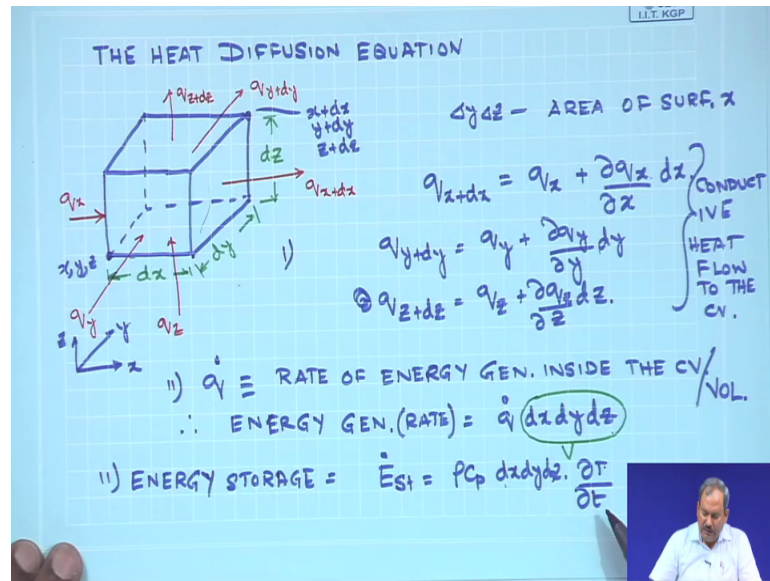 I.I.T. KGP
THE HEAT DIFFUSION EQUATION
q_z+dz
q_y+dy
x+dx
y+dy
z+dz
dz
q_x+dx
q_x
x,y,z
dx
dy
q_y
q_z
z
y
x
ΔyΔz – AREA OF SURF. x
I) q_x+dx = q_x + ∂q_x/∂x dx
q_y+dy = q_y + ∂q_y/∂y dy
q_z+dz = q_z + ∂q_z/∂z dz.
CONDUCT
IVE
HEAT
FLOW
TO THE
CV.
II) q̇ ≡ RATE OF ENERGY GEN. INSIDE THE CV/VOL.
∴ ENERGY GEN. (RATE) = q̇ dxdydz
II) ENERGY STORAGE = Ė_st = ρCp dxdydz. ∂T/∂t